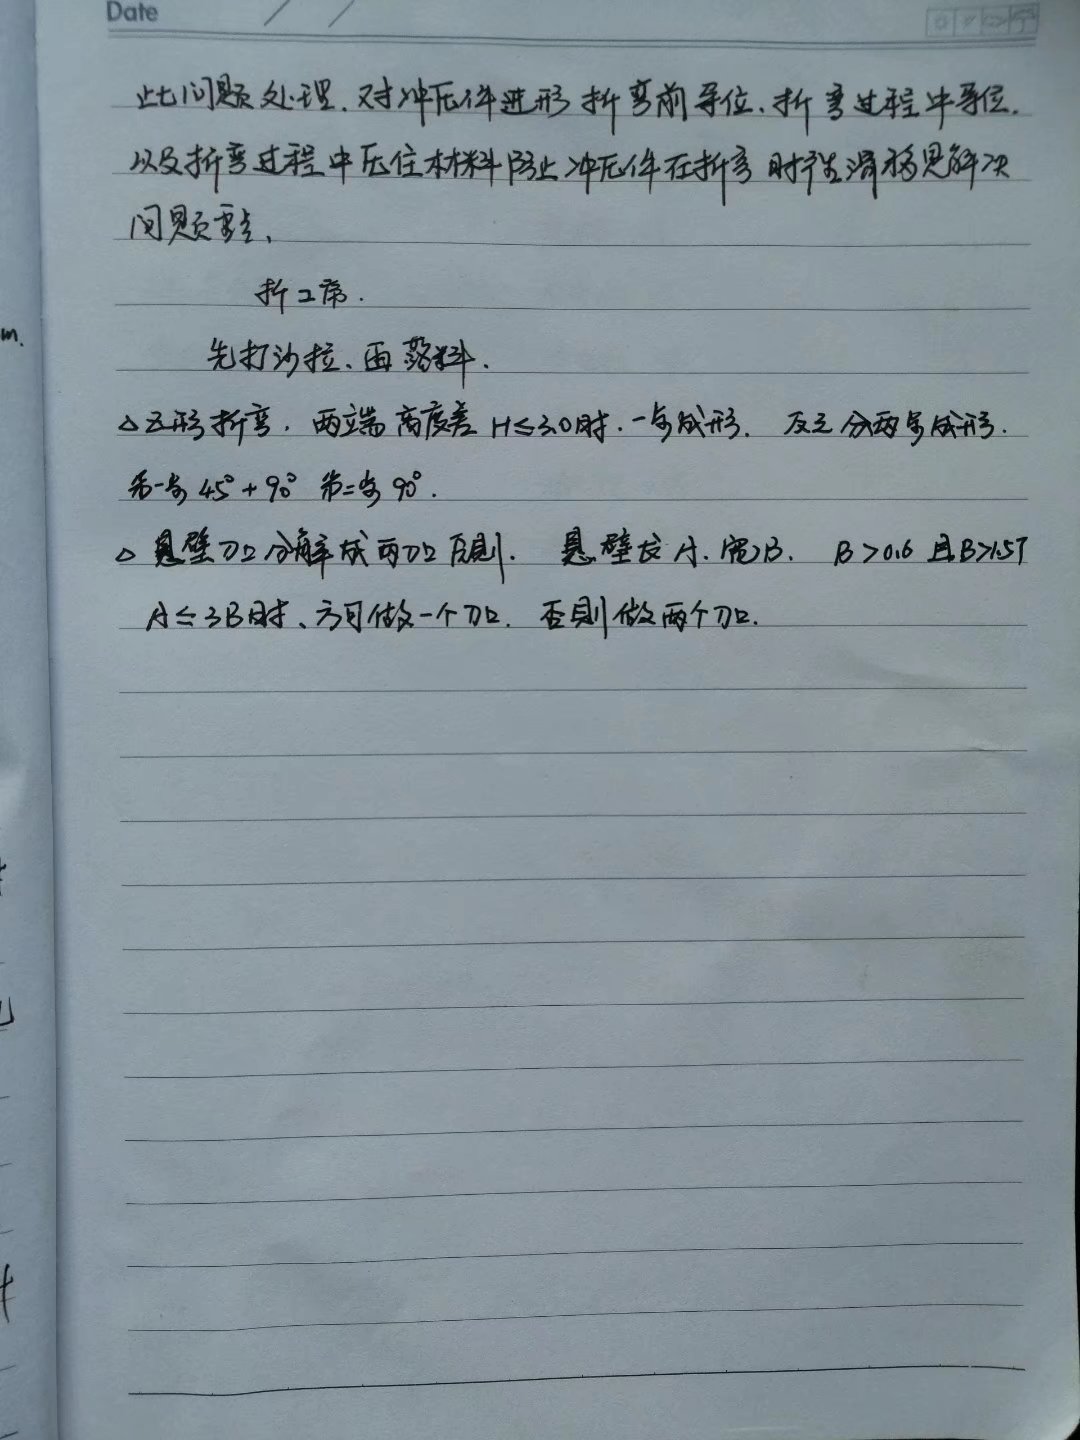 Date / /
此问题处理.对冲压件进形折弯前导位.折弯过程中导位.
以及折弯过程中压住材料防止冲压件在折弯时产生滑移是解决
问题重点、
折工序.
先打沙拉、再落料.
△Z形折弯.两端高度差H≤3.0时.一步成形.反之分两步成形.
第一步45°+90°第二步90°.
△悬壁刀口分解成两刀口原则.悬壁长A.宽B.B>0.6且B>1.5T
A≤3B时、方可做一个刀口.否则做两个刀口.
m.